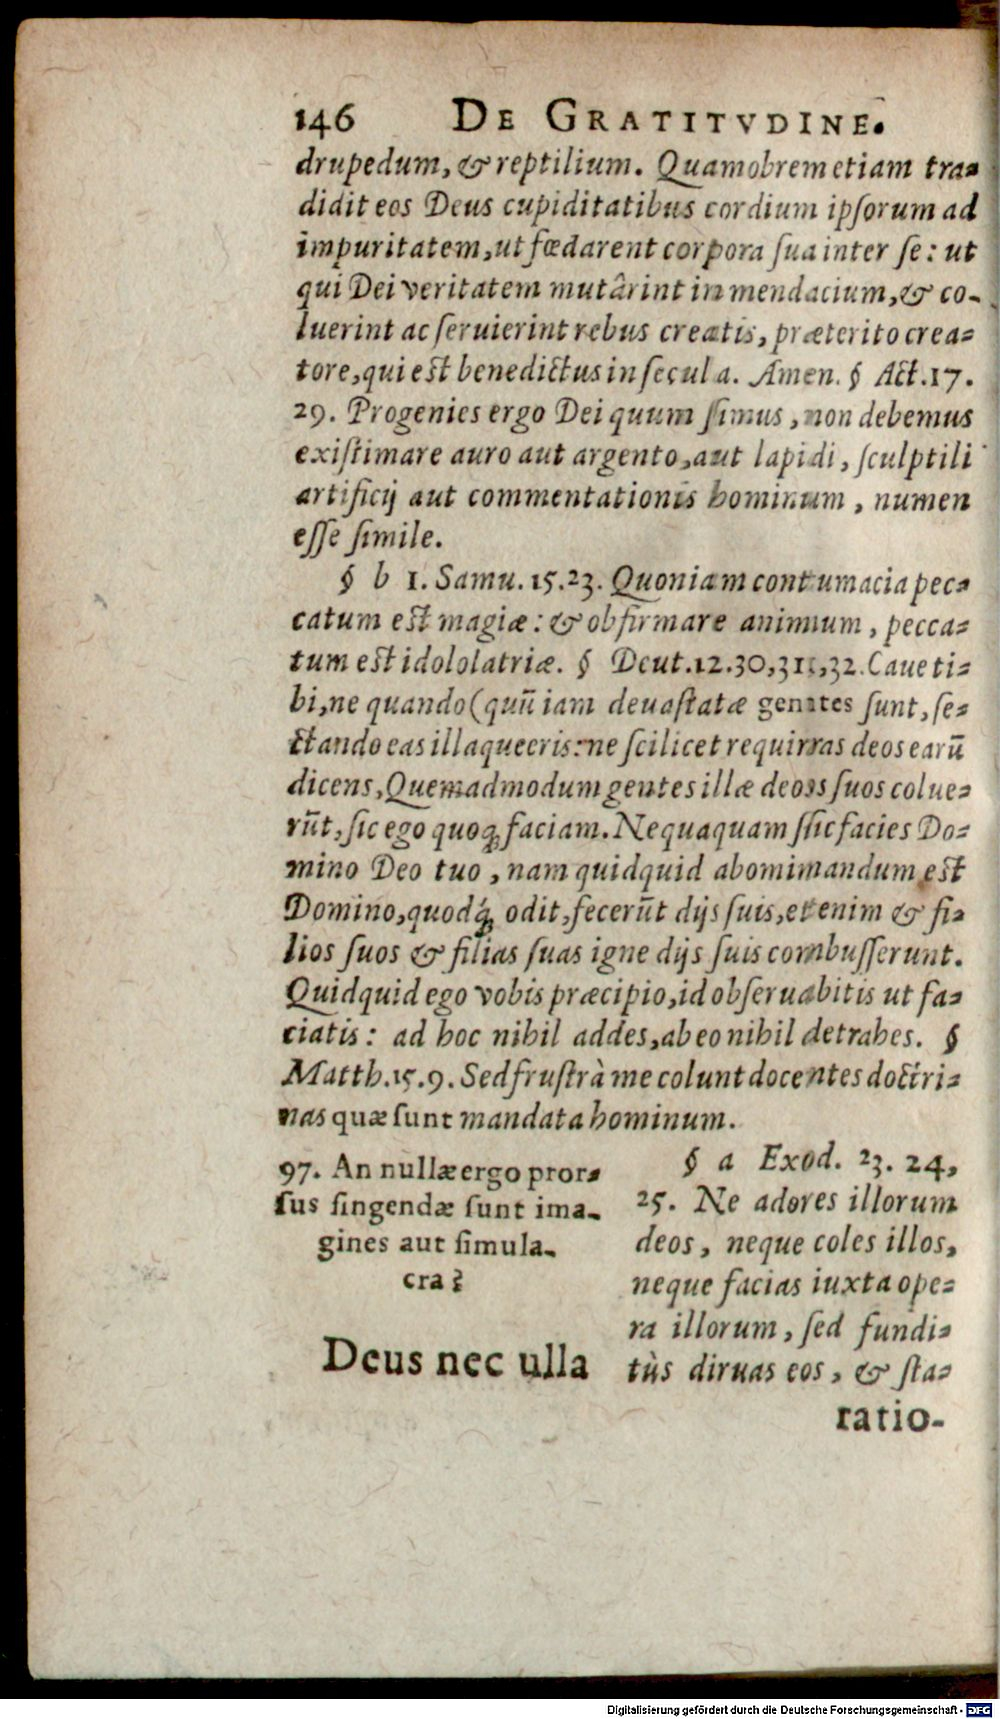 146 DE GRATITVDINE.
drupedum, & reptilium. Quamobrem etiam tra-
didit eos Deus cupiditatibus cordium ipſorum ad
impuritatem, ut fœdarent corpora ſua inter ſe: ut
qui Dei veritatem mutârint in mendacium, & co-
luerint ac ſeruierint rebus creatis, præterito crea-
tore, qui eſt benedictus in ſecula. Amen. § Act. 17.
29. Progenies ergo Dei quum ſimus, non debemus
exiſtimare auro aut argento, aut lapidi, ſculptili
artificij aut commentationis hominum, numen
eſſe ſimile.
§ b 1. Samu. 15. 23. Quoniam contumacia pec-
catum eſt magiæ: & obfirmare animum, pecca-
tum eſt idololatriæ. § Deut. 12. 30, 31, 32. Caue ti-
bi, ne quando (quũ iam deuaſtatæ gentes ſunt, ſe-
ctando eas illaqueeris: ne ſcilicet requiras deos earũ
dicens, Quemadmodum gentes illæ deos ſuos colue-
rũt, ſic ego quoq; faciam. Nequaquam ſic facies Do-
mino Deo tuo, nam quidquid abominandum eſt
Domino, quodq́; odit, fecerũt dijs ſuis, etenim & fi-
lios ſuos & filias ſuas igne dijs ſuis combuſſerunt.
Quidquid ego vobis præcipio, id obſeruabitis ut fa-
ciatis: ad hoc nihil addes, ab eo nihil detrahes. §
Matth. 15. 9. Sed fruſtrà me colunt docentes doctri-
nas quæ ſunt mandata hominum.
97. An nullæ ergo pror-
ſus fingendæ ſunt ima-
gines aut ſimula-
cra?
Deus nec ulla
§ a Exod. 23. 24,
25. Ne adores illorum
deos, neque coles illos,
neque facias iuxta ope-
ra illorum, ſed fundi-
tùs diruas eos, & ſta-
ratio-
Digitalisierung gefördert durch die Deutsche Forschungsgemeinschaft - DFG